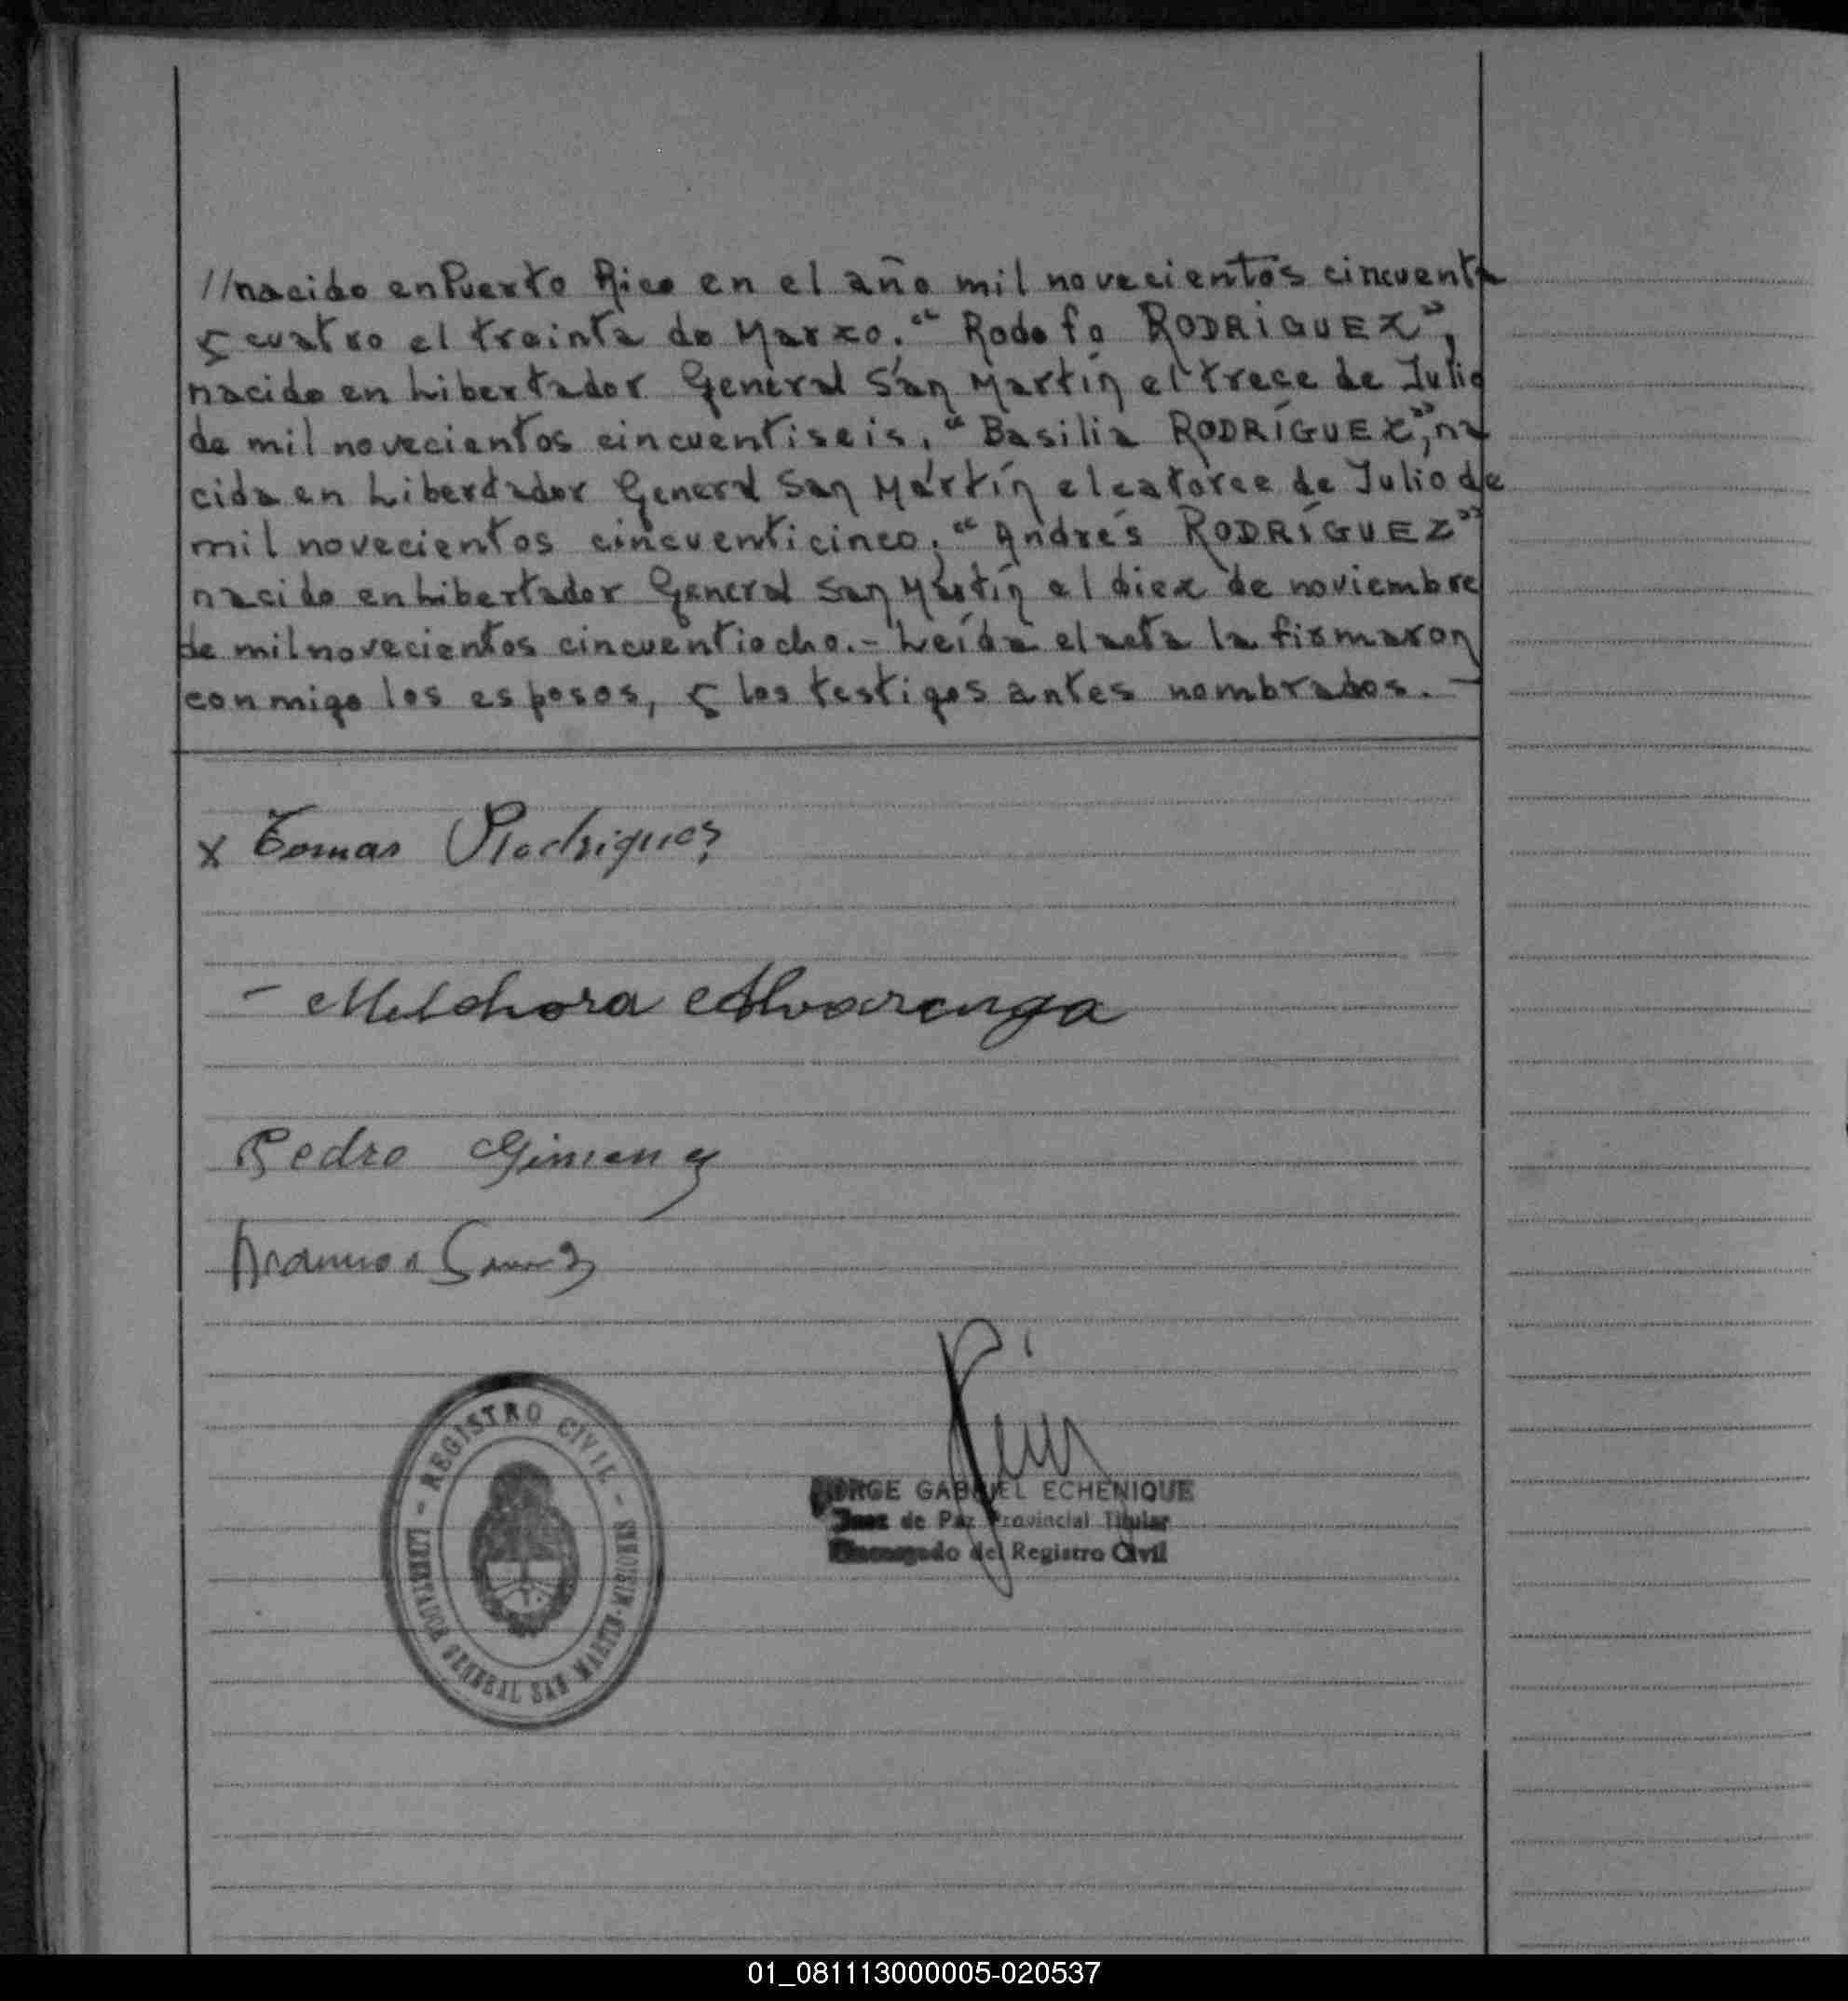 //nacido en Puerto Rico en el año mil novecientos cincuenta
y cuatro el treinta de Marzo. "Rodofo RODRÍGUEZ",
nacido en Libertador General San Martín el trece de Julio
de mil novecientos cincuentiseis. "Basilia RODRÍGUEZ", na
cida en Libertador General San Martín el catorce de Julio de
mil novecientos cincuenticinco. "Andrés RODRÍGUEZ"
nacido en Libertador General San Martín el diez de noviembre
de mil novecientos cincuentiocho.- Leída el acta la firmaron
conmigo los esposos, y los testigos antes nombrados. -
x Tomas Rodriguez
- Melchora Alvarenga
Pedro Gimenez
REGISTRO CIVIL - LIBERTADOR GENERAL SAN MARTIN-MISIONES -
JORGE GABRIEL ECHENIQUE
Juez de Paz Provincial Titular
Encargado del Registro Civil
01_081113000005-020537